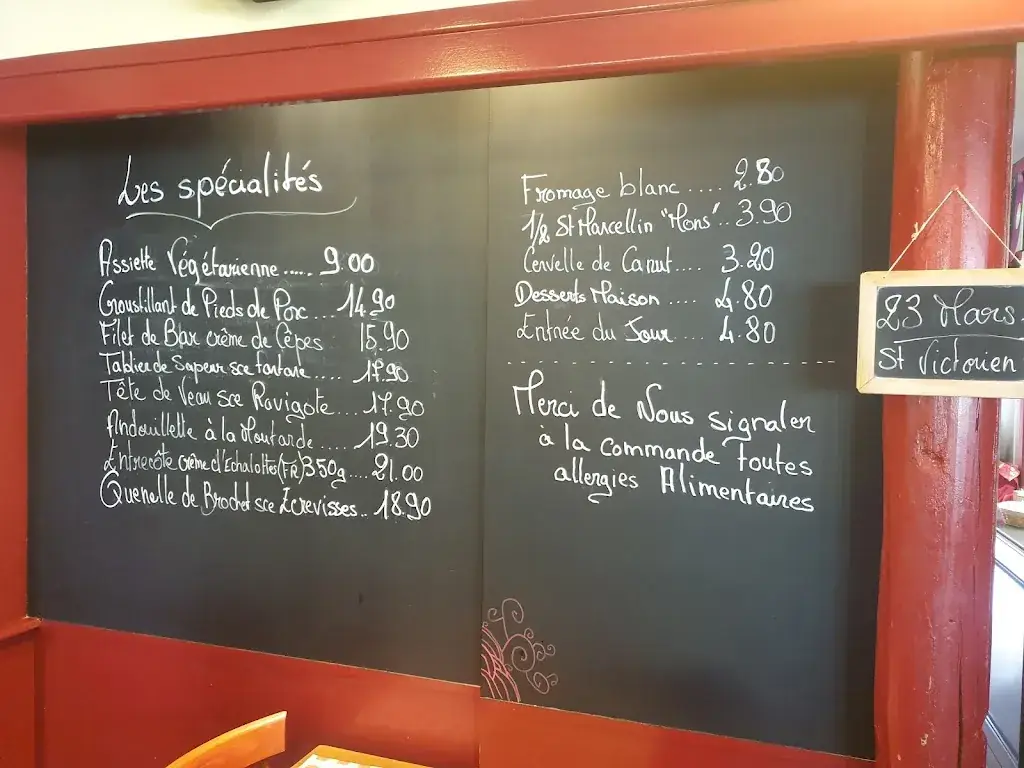 Les spécialités
Assiette Végétarienne ..... 9.00
Croustillant de Pieds de Porc ... 14.90
Filet de Bar crème de Cèpes 15.90
Tablier de Sapeur sce tartare ..... 17.90
Tête de Veau sce Ravigote .... 17.90
Andouillette à la Moutarde ..... 19.30
Entrecôte crème d'Echalottes (FR) 350g .... 21.00
Quenelle de Brochet sce Ecrevisses .. 18.90
Fromage blanc ..... 2.80
1/2 St Marcellin "Mons" .. 3.90
Cervelle de Canut .... 3.20
Desserts Maison .... 4.80
Entrée du Jour .... 4.80
Merci de Nous signaler
à la commande Toutes
allergies Alimentaires
23 Mars
St Victorien